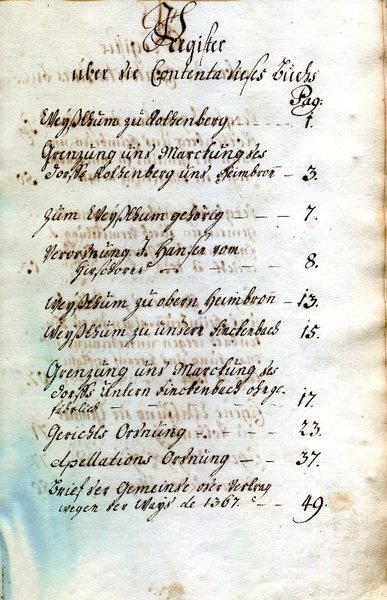 Register
über die Contenta dieses Buchs
Pag:
Weyßthum zu Rothenberg — 1.
Grenzung und Marckung des
Dorffs Rothenberg und Heimbronn – 3.
zum Weyßthum gehörig – – 7.
Verordnung H. Hansen vom
Hirschorn – 8.
Weyßthum zu obern Heimbronn – 13.
Weyßthum zu untern Finckenbach 15.
Grenzung und Marckung des
Dorffs Untern Finckenbach ohnge-
fährlich 17.
Gerichts Ordnung – – 23.
Apellations Ordnung – – 37.
Brief der Gemeinde oder Vertrag
wegen der Ways de 1367. – – 49.